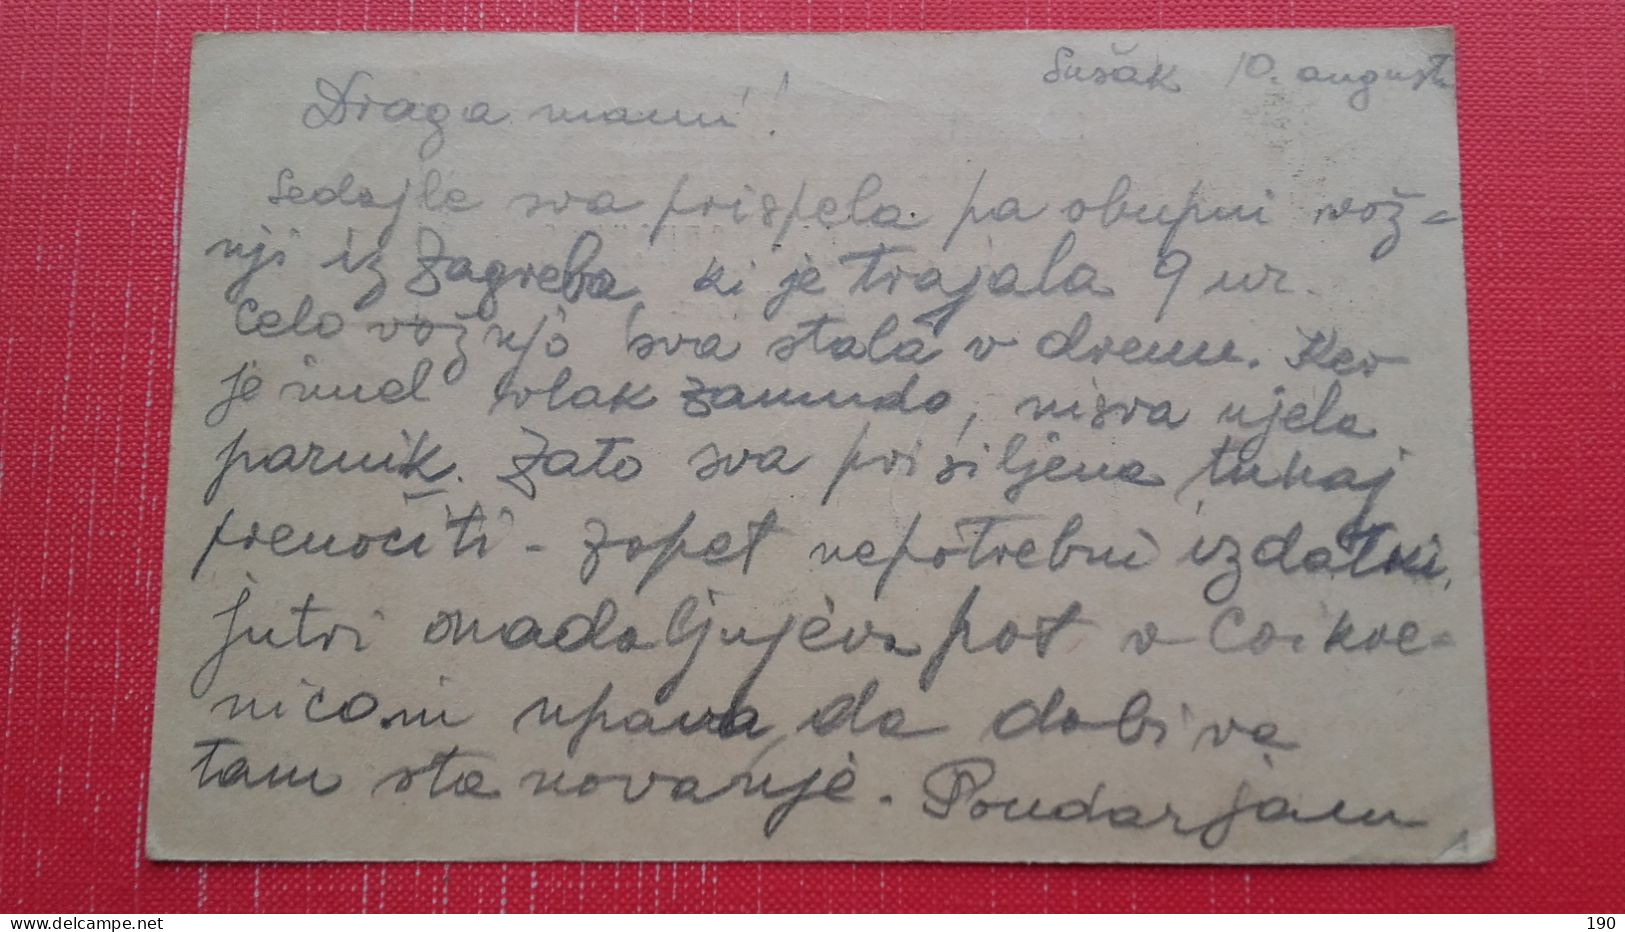 Sušak 10. augusta
Draga mami!
Sedajle sva prispela po obupni vož=
nji iz Zagreba, ki je trajala 9 ur.
Celo vožnjo sva stala v drenu. Ker
je imel vlak zamudo, nisva ujela
parnik. Zato sva prisiljena tukaj
prenočiti - zopet nepotrebni izdatki,
jutri nadaljujeva pot v Crikve-
nico in upava, da dobiva
tam stanovanje. Poudarjam,
190